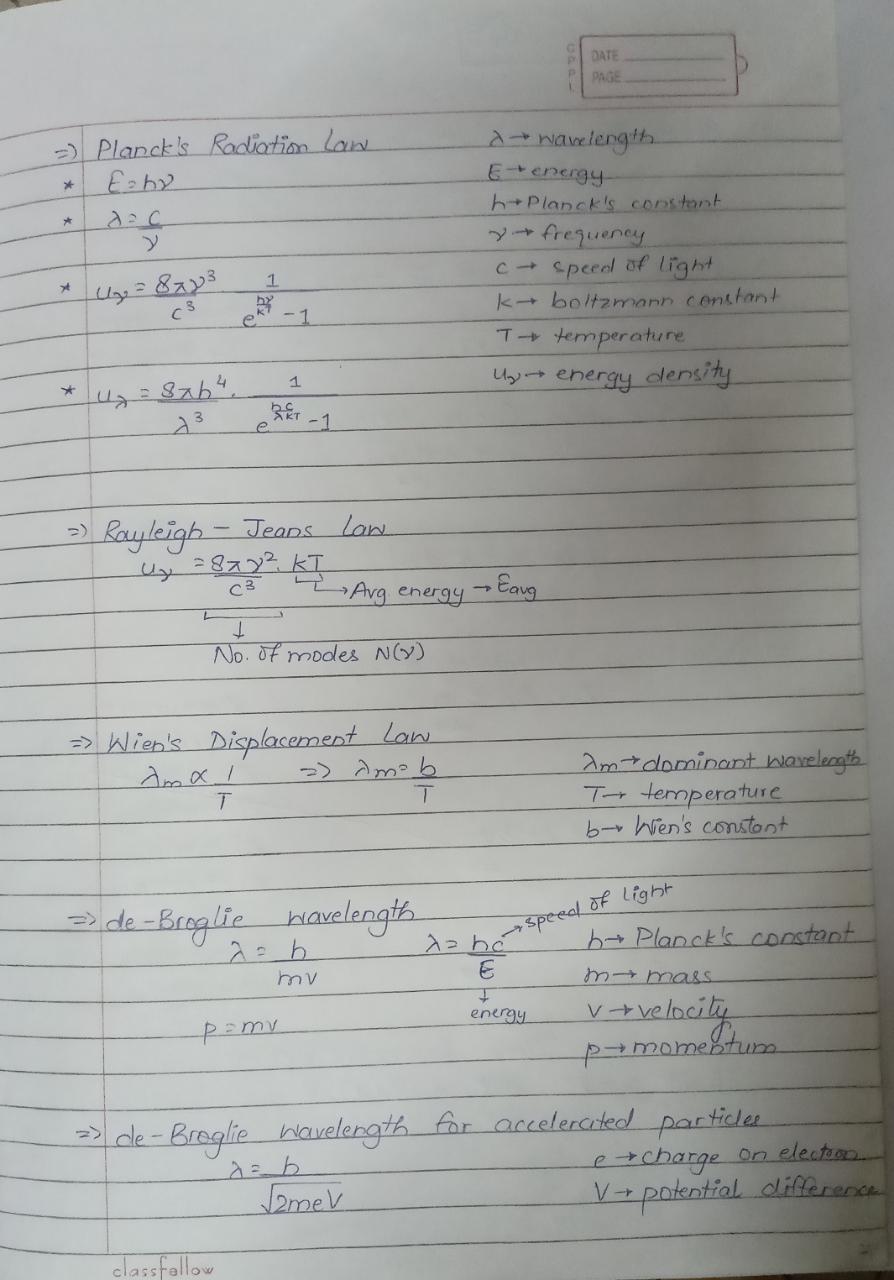 GPPL DATE
PAGE
=> Planck's Radiation Law
* E=hν
* λ=c/ν
* uν = 8πν³/c³ 1/(e^(hν/kT) -1)
* uλ = 8πh⁴/λ³ . 1/(e^(hc/λkT) -1)
λ→wavelength
E→energy
h→Planck's constant
ν→frequency
c→ speed of light
k→ boltzmann constant
T→ temperature
uν→ energy density
=> Rayleigh - Jeans Law
uν = 8πν²/c³ . kT
→Avg. energy → Eavg
↓
No. of modes N(ν)
=> Wien's Displacement Law
λm ∝ 1/T => λm= b/T
λm→dominant wavelength
T→ temperature
b→ Wien's constant
=> de-Broglie wavelength
λ = h/mv λ = hc/E →speed of light
↓
energy
p=mv
h→ Planck's constant
m→ mass
v→velocity
p→momentum
=> de-Broglie wavelength for accelerated particles
λ = h/√2meV
e→charge on electron
V→ potential difference
classfellow